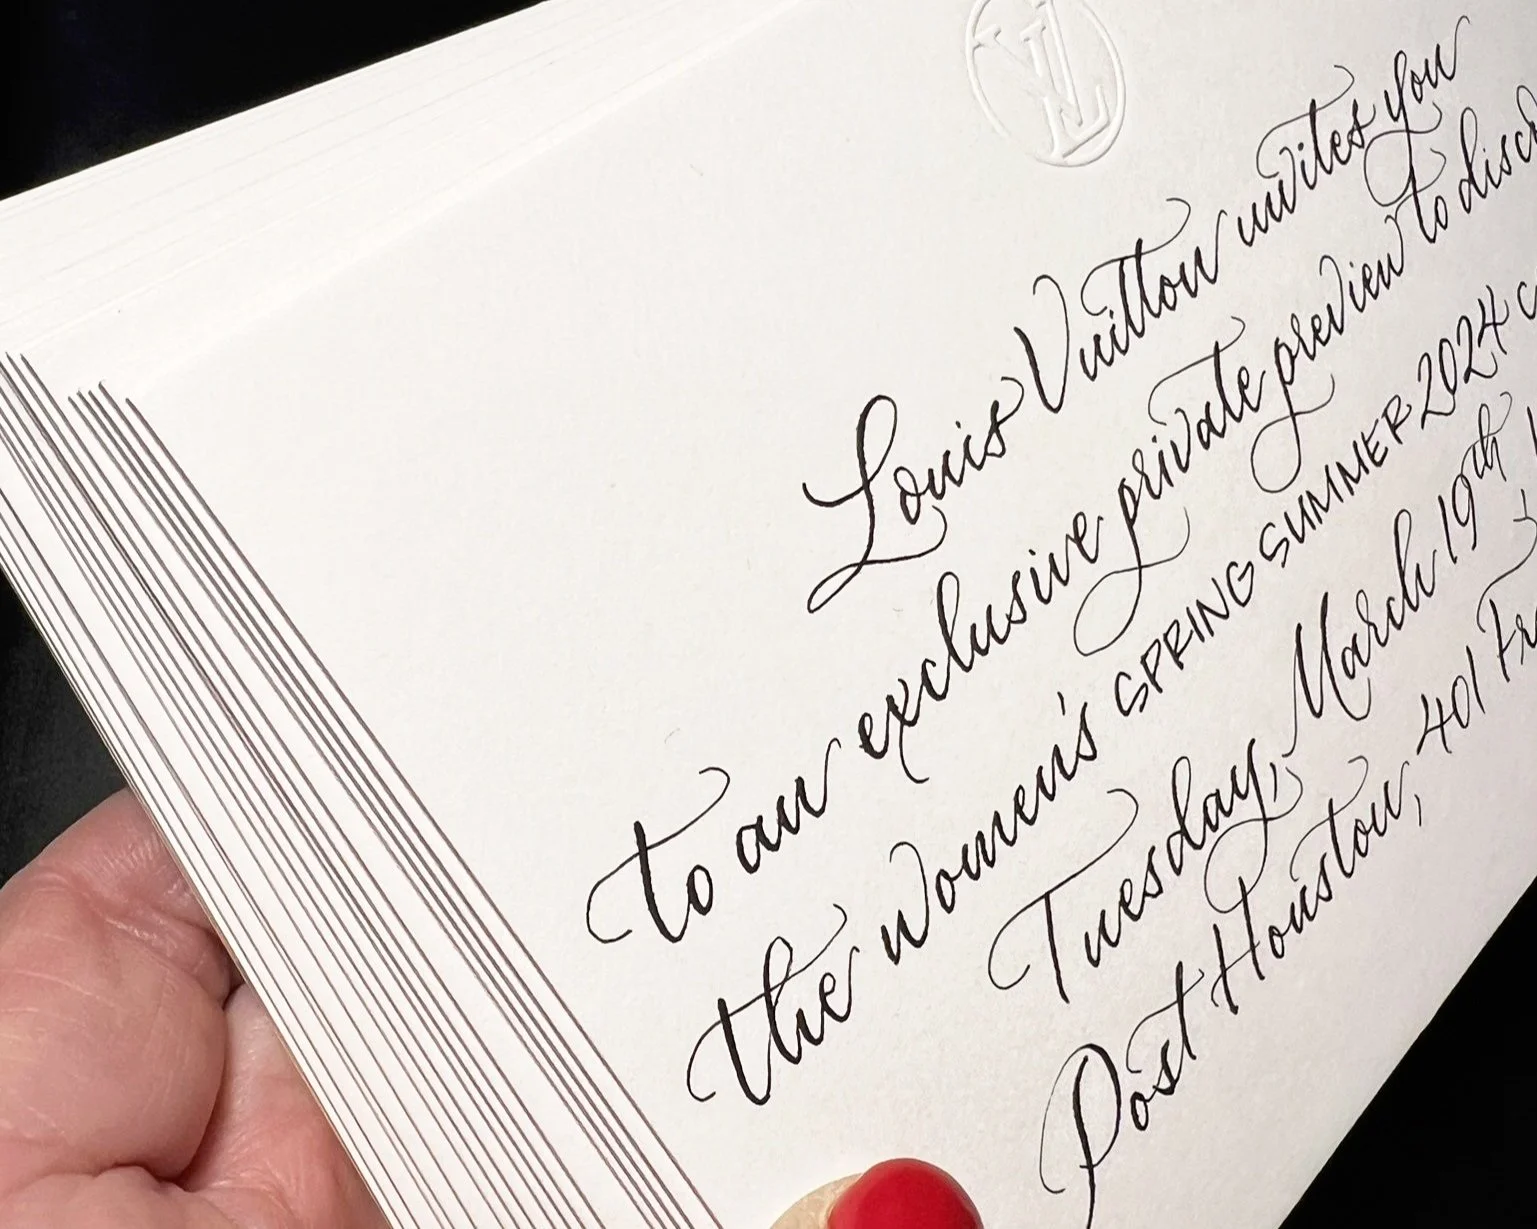 LV
Louis Vuitton invites you
to an exclusive private preview to
the Women's SPRING SUMMER 2024
Tuesday, March 19th
Post Houston, 401